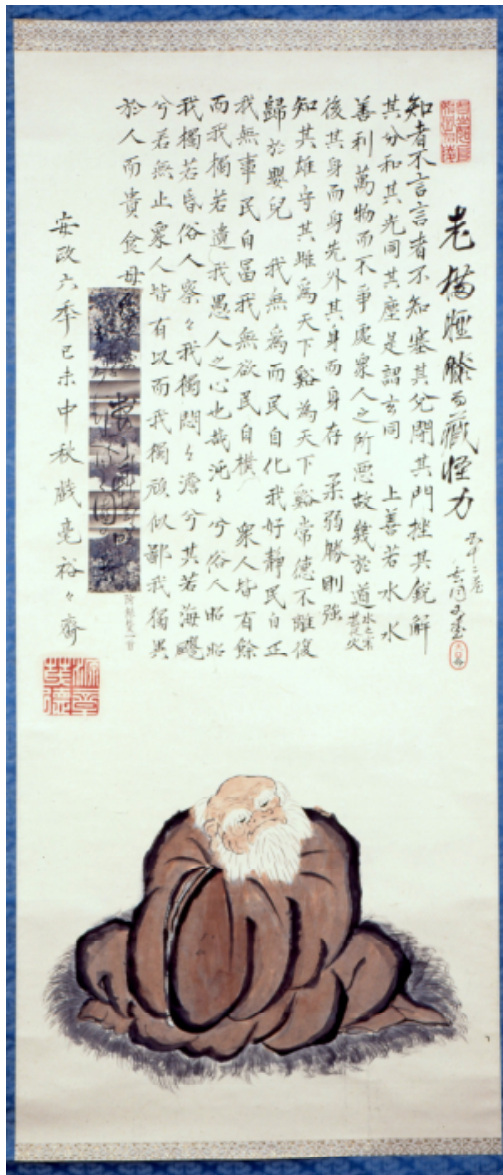 老
知者不言言者不知塞其兌閉其門挫其銳解
其分和其光同其塵是謂玄同 上善若水水
善利萬物而不爭處衆人之所惡故幾於道
後其身而身先外其身而身存 柔弱勝剛强
知其雄守其雌為天下谿為天下谿常德不離復
歸於嬰兒 我無為而民自化 我好靜民自正
我無事民自富我無欲民自樸 衆人皆有餘
而我獨若遺我愚人之心也哉沌々兮俗人昭昭
我獨若昏俗人察々我獨悶々澹兮其若海飂
兮若無止衆人皆有以而我獨頑似鄙我獨異
於人而貴食母
安政六季己未中秋戲毫裕々齋